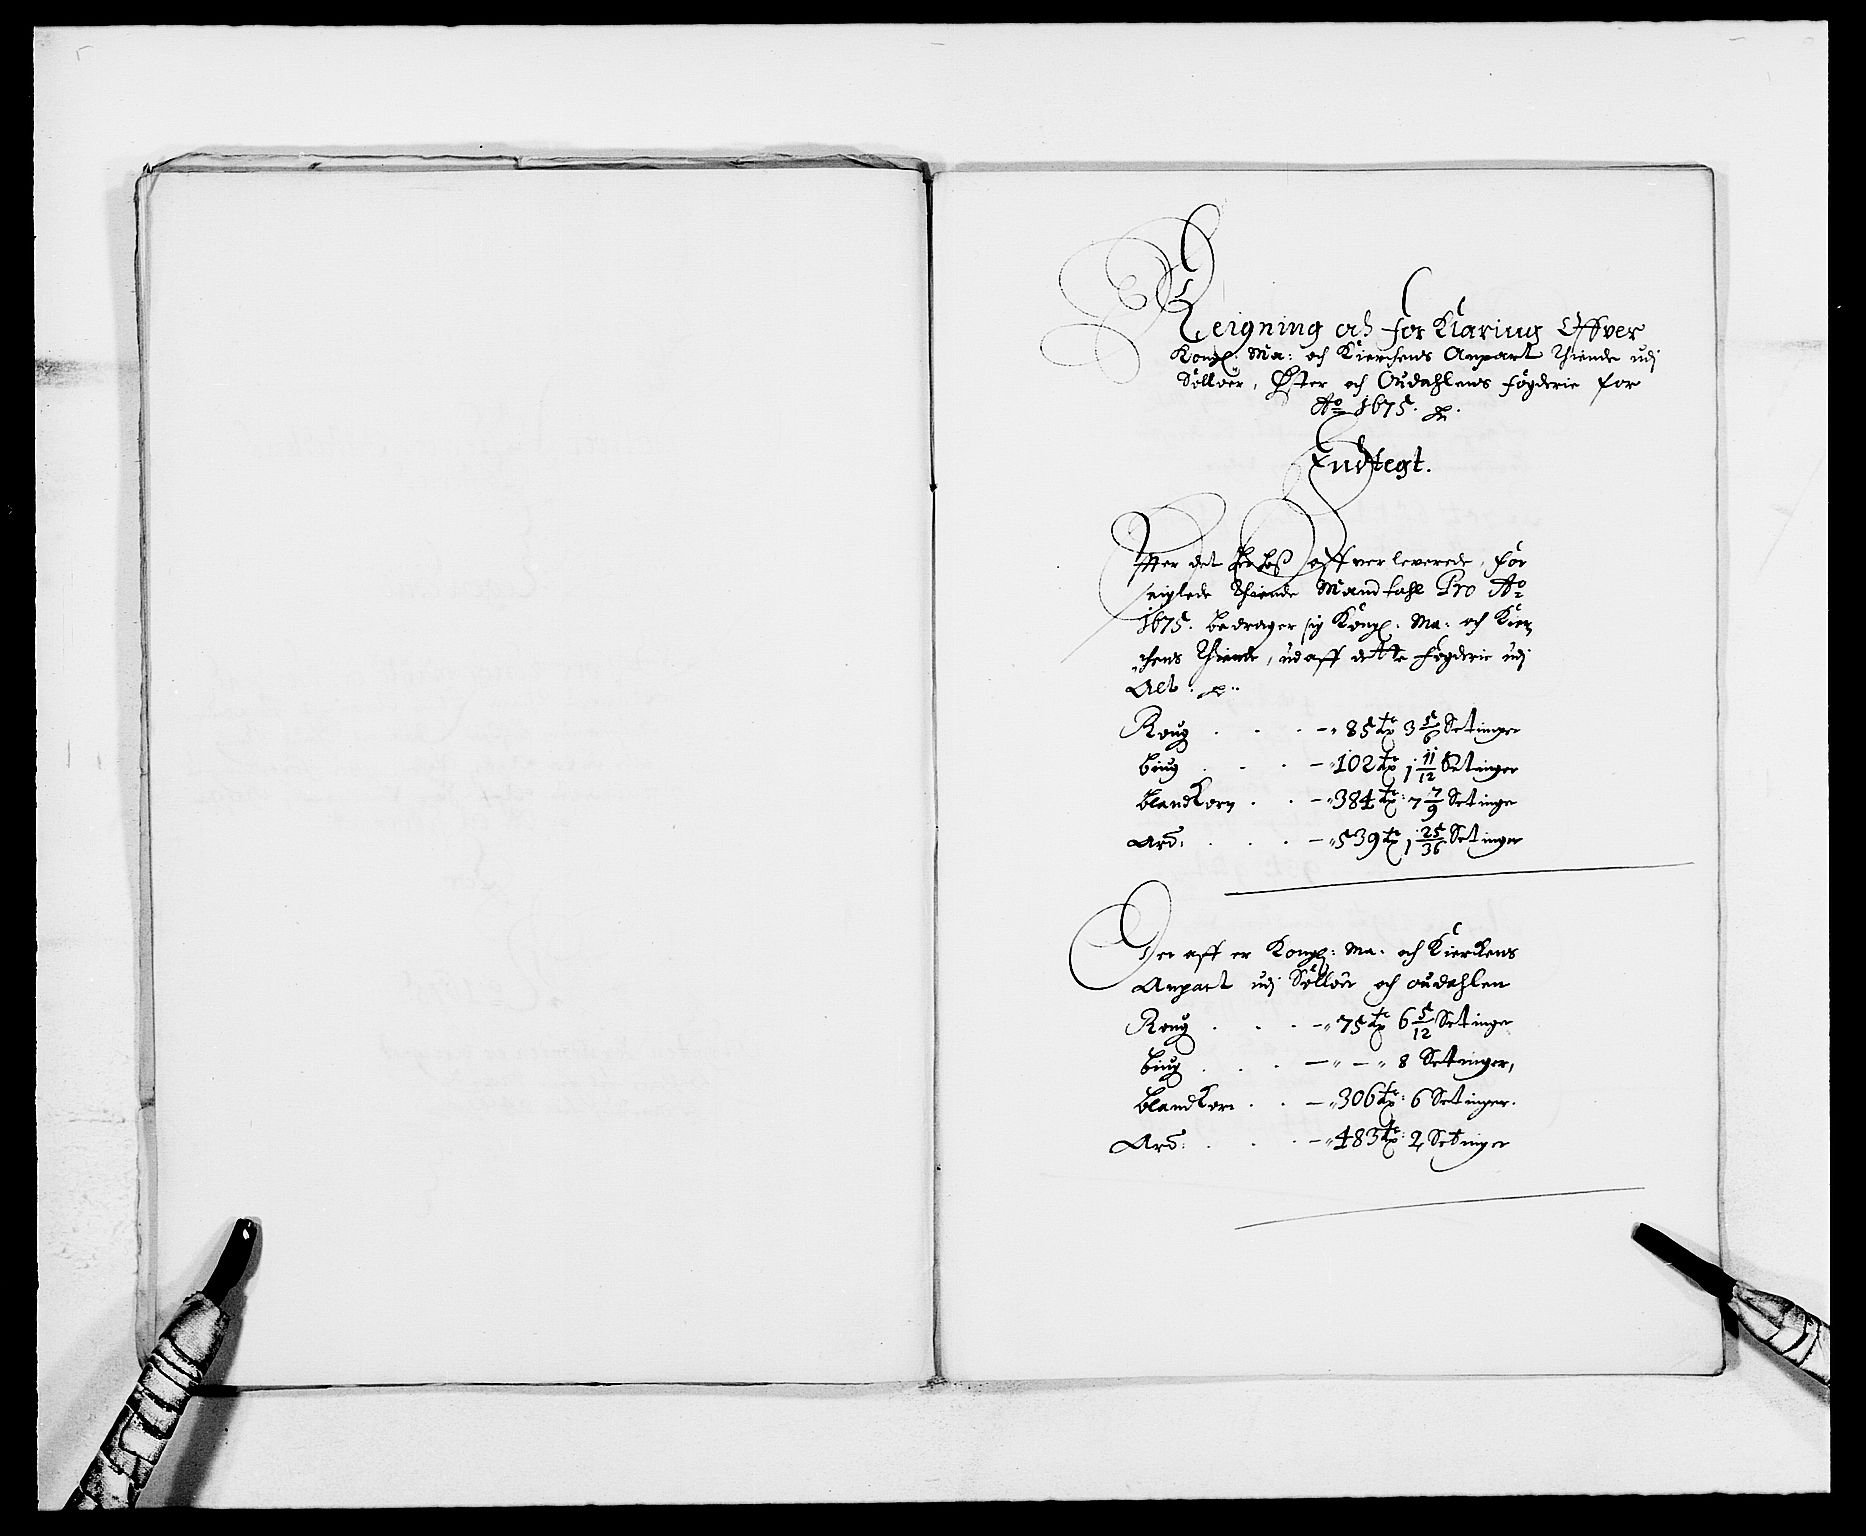 Reigning och for Klaring Offver
Kongl: Ma: och Kierchens Anpart Thiende udj
Solløer, Øster och Oudahlens fogderie for
Ao 1675.
Indtegt.
Effter det her hoß offverleverede, for
seiglede Thiende Mandtahl Pro Ao
1675. bedrager sig Kongl. Ma: och Kier
chens Thiende, ud aff dette fogderie udj
Alt:
Roug . . . - 85 tr 3 5/6 Setinger
biug . . . - 102 tr 1 11/12 Setinger
blandkorn . . - 384 tr: 7 7/9 Setinger
Arð: . . . - 539 tr 1 25/36 Setinger
Der aff er Kongl: Ma: och Kierckens
Anpart udj Solløer och oudahlen
Roug . . . - 75 tr 6 5/12 Setinger
biug . . . - - 8 Setinger,
blandkorn . . - 306 tr: 6 Setinger.
Arð: . . . - 483 tr: 2 Setinger